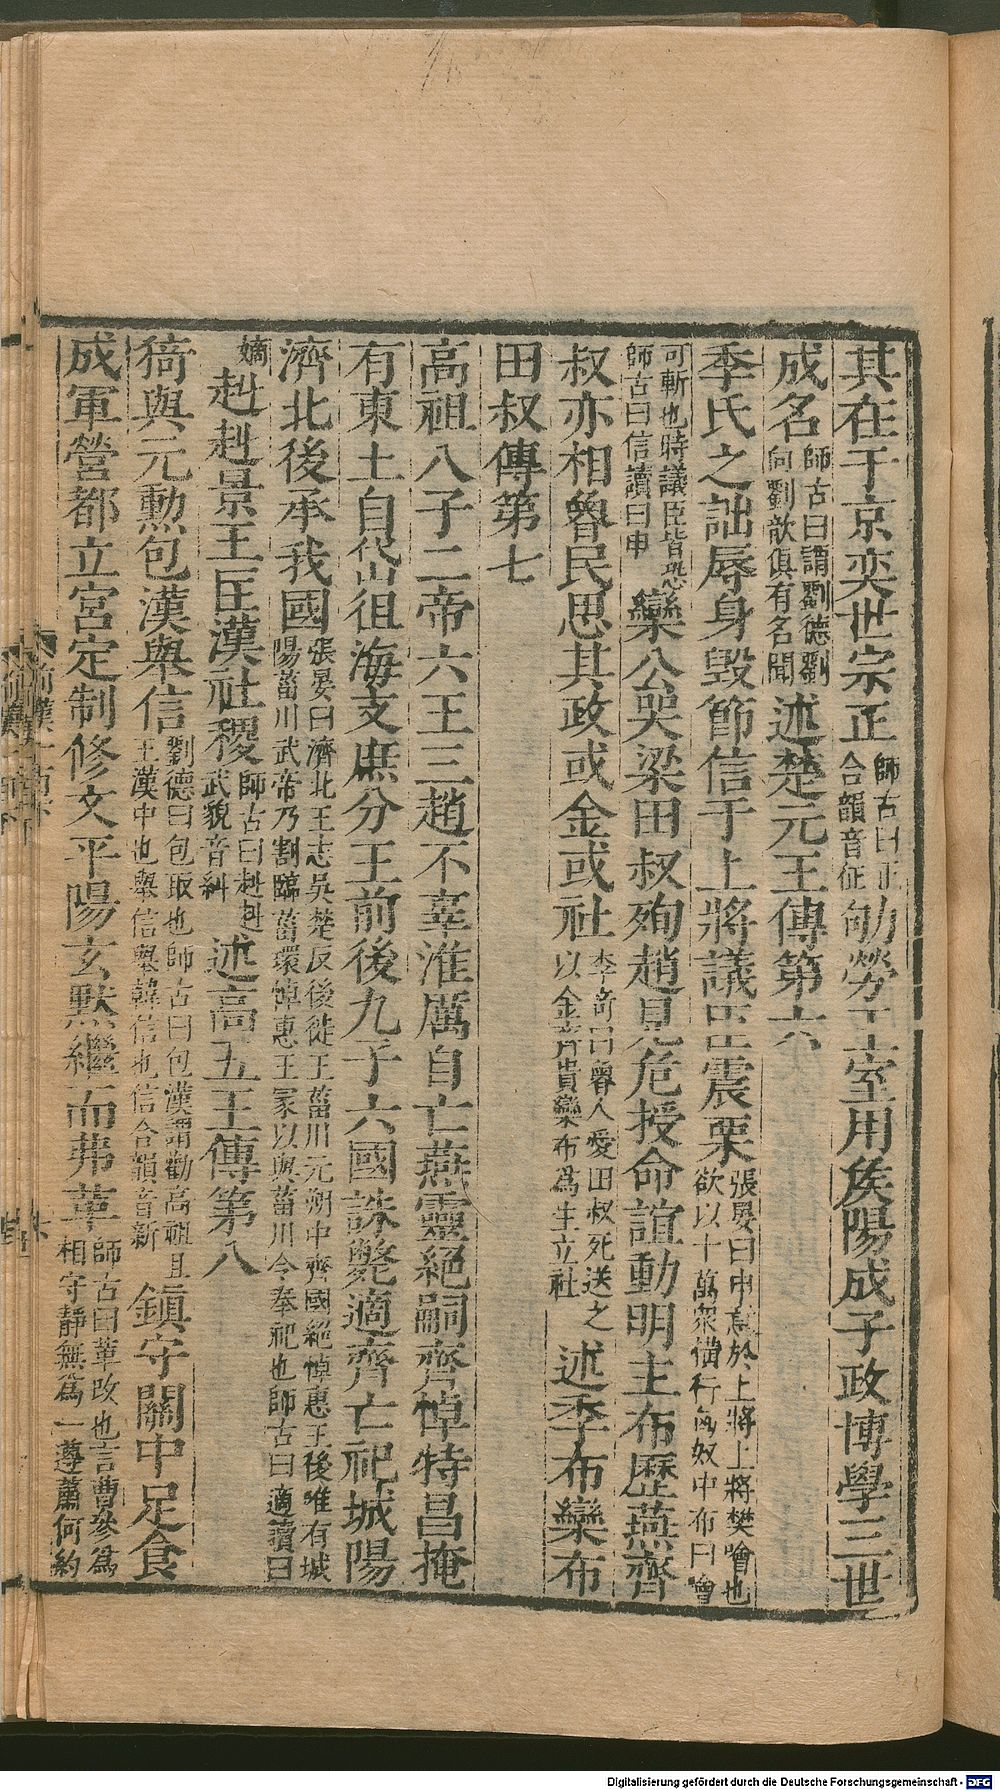 其在于京奕世宗正師古曰正合韻音征劬勞王室用矦陽成子政博學三世
成名師古曰謂劉德劉向劉歆俱有名聞述楚元王傳第六
季氏之詘辱身毀節信于上將議臣震栗張晏曰申意於上將上將樊噲也欲以十萬衆橫行匈奴中布曰噲
可斬也時議臣皆恐師古曰信讀曰申欒公哭梁田叔殉趙見危授命誼動明主布歷燕齊
叔亦相魯民思其政或金或社李奇曰魯人愛田叔死送之以金齊貴欒布爲生立社述季布欒布
田叔傳第七
高祖八子二帝六王三趙不辜淮厲自亡燕靈絕嗣齊悼特昌掩
有東土自岱徂海支庶分王前後九子六國誅斃適齊亡祀城陽
濟北後承我國張晏曰濟北王志吳楚反後徙王菑川元朔中齊國絕悼惠王後唯有城陽菑川武帝乃割臨菑環悼惠王冢以與菑川令奉祀也師古曰適讀曰
嫡赳赳景王匡漢社稷師古曰赳赳武貌音糾述高五王傳第八
猗與元勳包漢舉信劉德曰包取也師古曰包漢謂勸高祖且王漢中也舉信舉韓信也信合韻音新鎮守關中足食
成軍營都立宮定制修文平陽玄默繼而弗革師古曰革改也言曹參爲相守靜無爲一遵蕭何約
Digitalisierung gefördert durch die Deutsche Forschungsgemeinschaft - DFG